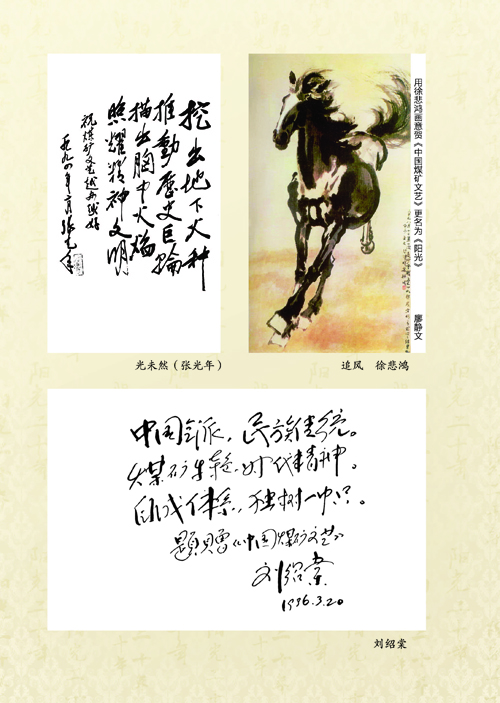 挖出地下火种
推動歷史巨輪
描出胸中火焰
照耀精神文明
祝煤矿文艺越办越好
张光年
光未然（张光年）
用徐悲鸿画意贺《中国煤矿文艺》更名为《阳光》 廖静文
追风 徐悲鸿
中国气派，民族传统。
煤矿生活，时代精神。
自成体系，独树一帜。
题赠《中国煤矿文艺》
刘绍棠
1996.3.20
刘绍棠